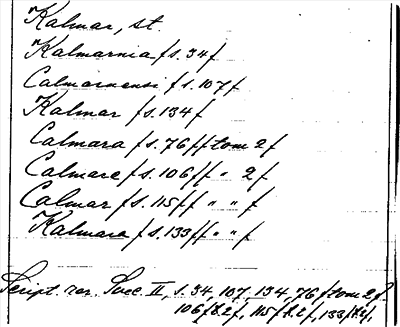 Kalmar, st.
Kalmarnia f s. 34 f
Calmarnensi f s. 107 f
Kalmar f s. 134 f
Calmara f s. 76 ff tom 2 f
Calmare f s. 106 ff " 2 f
Calmar f s. 115 ff " " f
Kalmare f s. 133 ff " " f
Script. rer. Svec. II, s. 34, 107, 134, 76 f tom 2 f.
106 f 2 f, 115 f. 2 f, 133 f. 2 f,